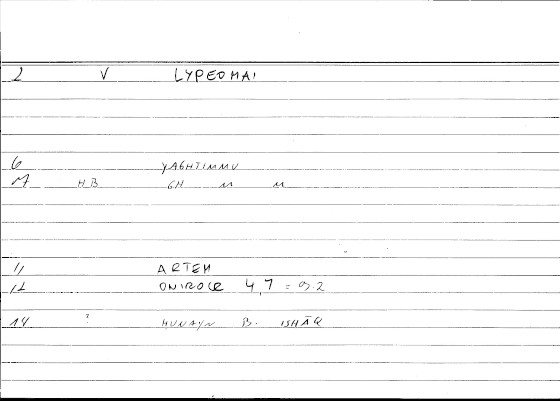 2 V LYPEOMAI
6 YAGHTIMMU
17 H.B GH M M
11 ARTEM
12 ONIROCR 4,7 = 9.2
14 ? HUNAYN B. ISHĀQ